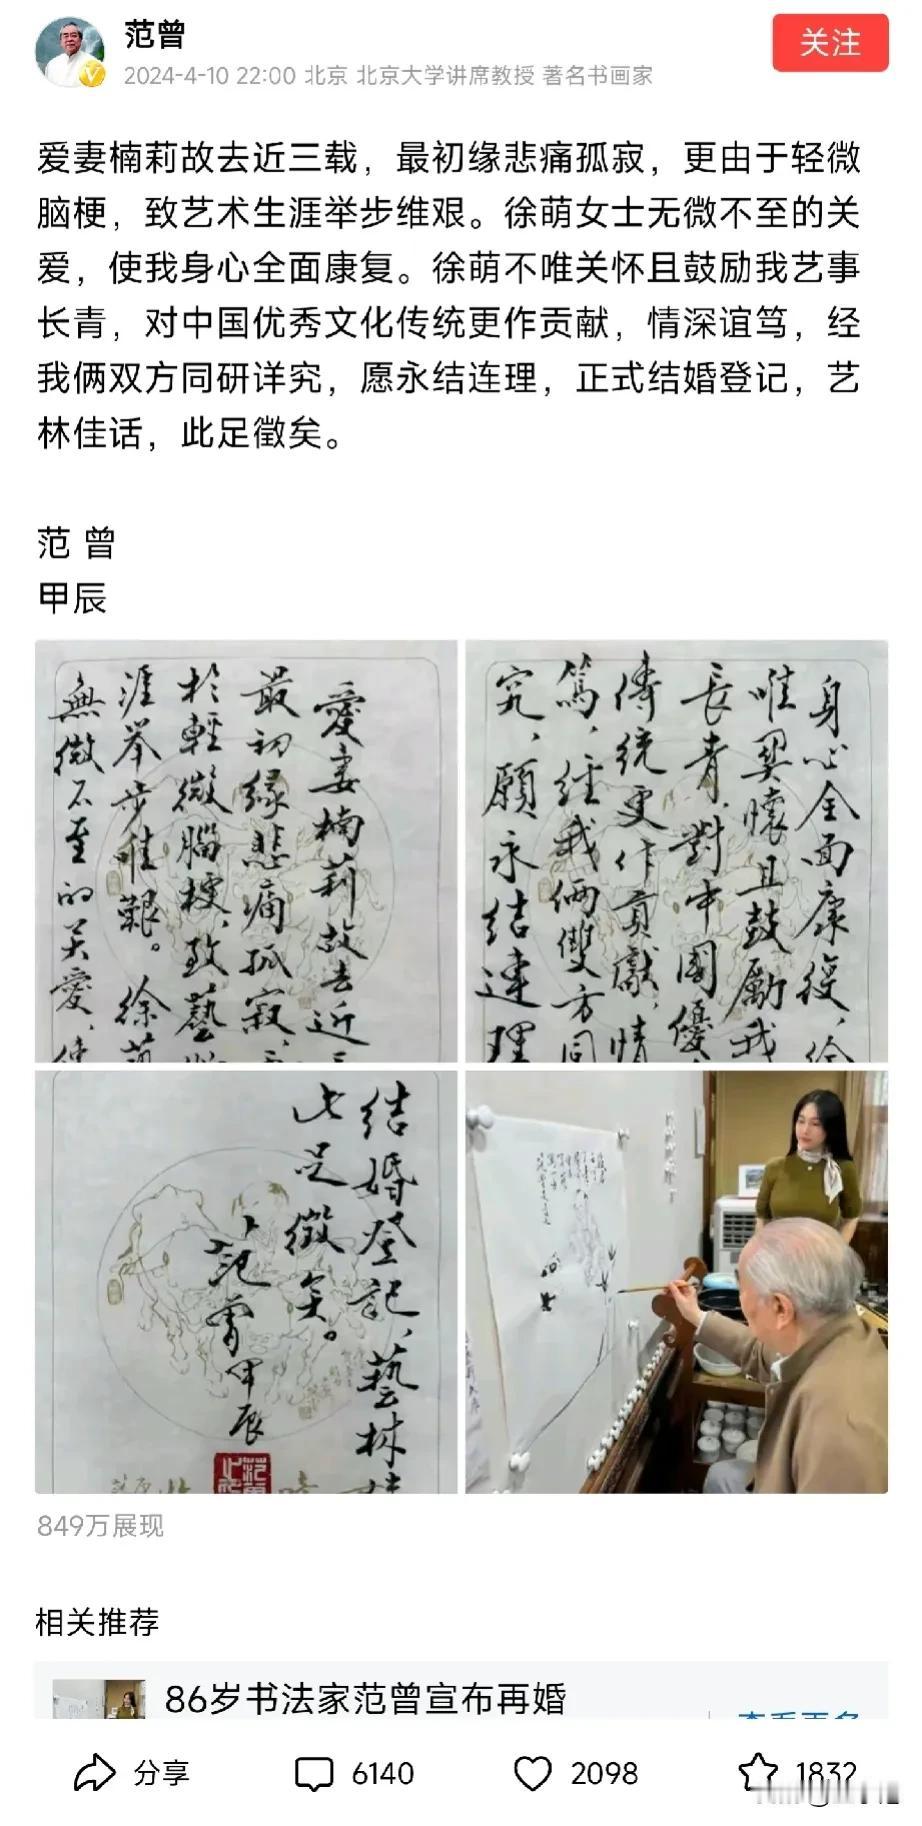 范曾
关注
2024-4-10 22:00 北京 北京大学讲席教授 著名书画家
爱妻楠莉故去近三载，最初缘悲痛孤寂，更由于轻微
脑梗，致艺术生涯举步维艰。徐萌女士无微不至的关
爱，使我身心全面康复。徐萌不唯关怀且鼓励我艺事
长青，对中国优秀文化传统更作贡献，情深谊笃，经
我俩双方同研详究，愿永结连理，正式结婚登记，艺
林佳话，此足徵矣。
范 曾
甲辰
愛妻楠莉故去近
最初缘悲痛孤寂，
於輕微腦梗，致藝
涯举步唯艱。徐
無微不至的关愛，
身心全面康復，徐
唯関懷且鼓勵我
長青，對中國優
傳統更作貢獻，情
篤，经我俩雙方同
究，願永结連理
结婚登记，藝林
此足徵矣。
范曾甲辰
849万展现
相关推荐
86岁书法家范曾宣布再婚
查看更多
分享
6140
2098
1832